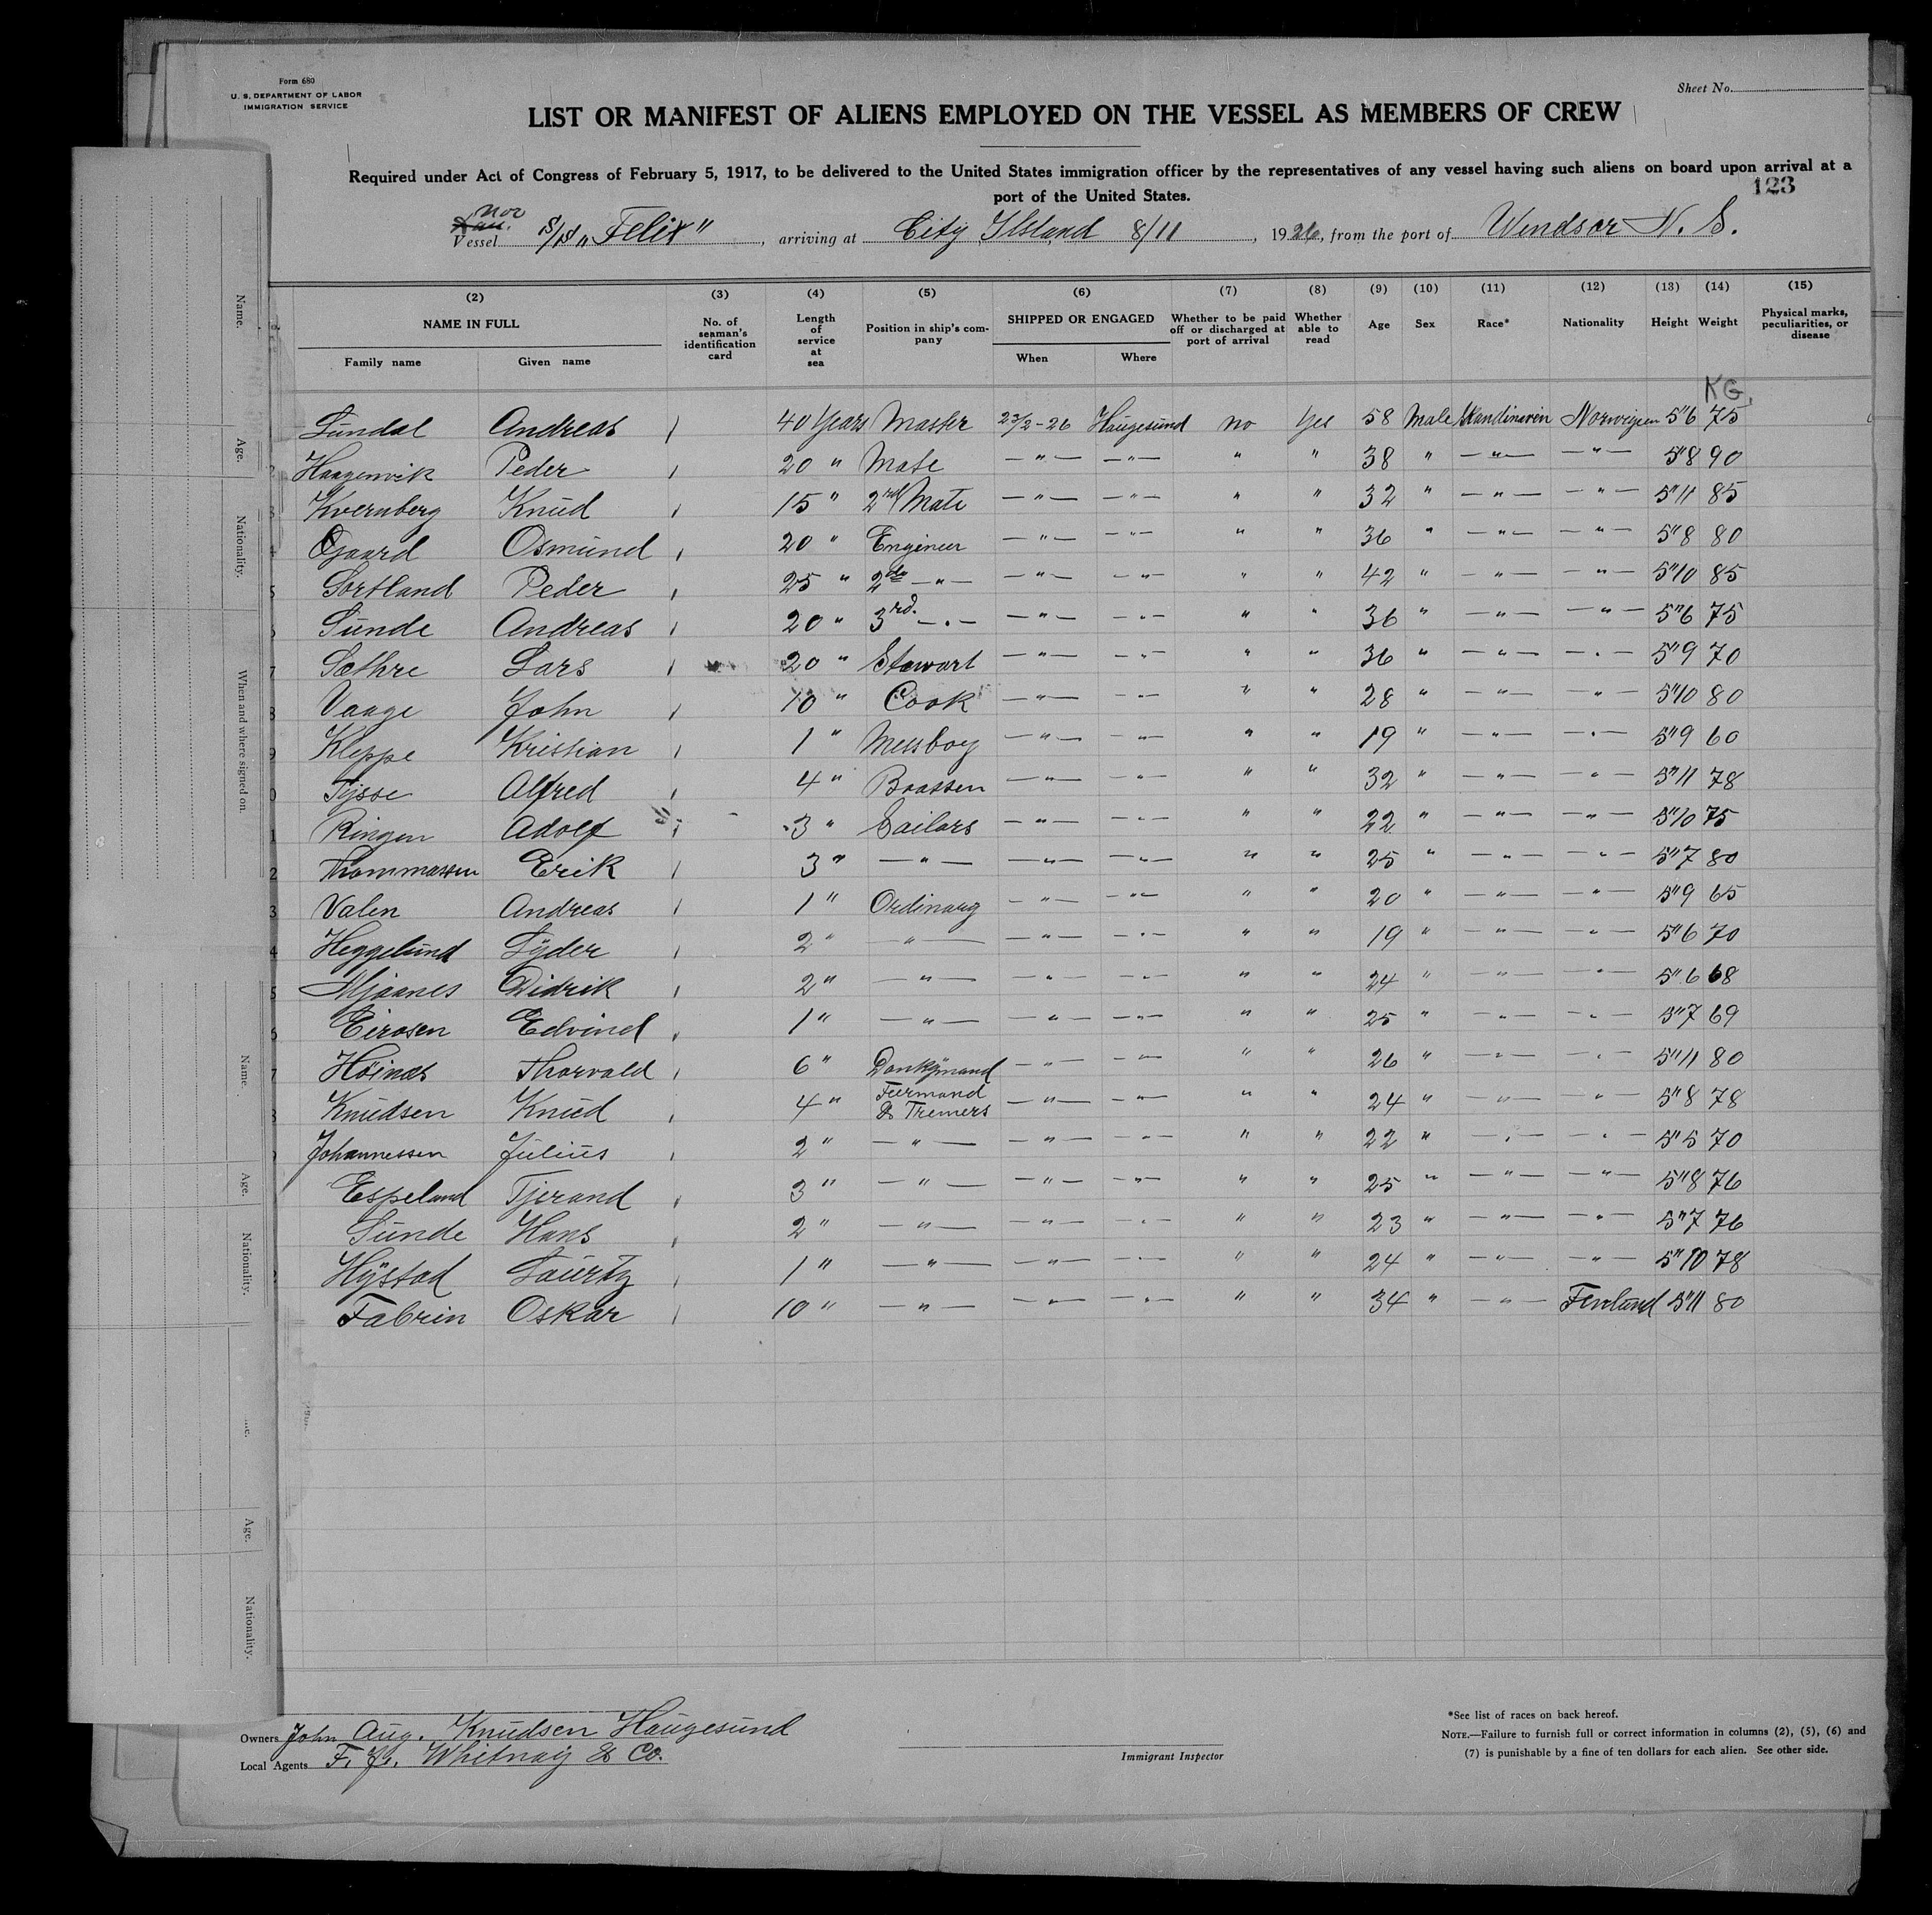 Form 680
U. S. DEPARTMENT OF LABOR
IMMIGRATION SERVICE
Sheet No.
LIST OR MANIFEST OF ALIENS EMPLOYED ON THE VESSEL AS MEMBERS OF CREW
Required under Act of Congress of February 5, 1917, to be delivered to the United States immigration officer by the representatives of any vessel having such aliens on board upon arrival at a
port of the United States.
123
Nor
Vessel S/S „Felix", arriving at City Island 8/11, 1926, from the port of Windsor N. S.
(2) (3) (4) (5) (6) (7) (8) (9) (10) (11) (12) (13) (14) (15)
NAME IN FULL
Family name Given name
No. of seaman's identification card
Length of service at sea
Position in ship's company
SHIPPED OR ENGAGED
When Where
Whether to be paid off or discharged at port of arrival
Whether able to read
Age Sex Race* Nationality Height Weight
Physical marks, peculiarities, or disease
KG.
Sundal Andreas 40 Years Master 23/2-26 Haugesund no Yes 58 Male Skandinavin Norwigien 5"6 75
Haagenvik Peder 20 " Mate —"— —"— " " 38 " —"— —"— 5"8 90
Kvernberg Knud 15 " 2nd Mate —"— —"— " " 32 " —"— —"— 5"11 85
Ogaard Osmund 20 " Engineer —"— —"— " " 36 " —"— —"— 5"8 80
Sortland Peder 25 " 2de —"— —"— —"— " " 42 " —"— —"— 5"10 85
Sunde Andreas 20 " 3rd. —"— —"— —"— " " 36 " —"— —"— 5"6 75
Sæthre Lars 20 " Stewart —"— —"— " " 36 " —"— —"— 5"9 70
Vaage John 10 " Cook —"— —"— " " 28 " —"— —"— 5"10 80
Kleppe Kristian 1 " Messboy —"— —"— " " 19 " —"— —"— 5"9 60
Tysse Alfred 4 " Baassen —"— —"— " " 32 " —"— —"— 5"11 78
Ringen Adolf 3 " Sailors —"— —"— " " 22 " —"— —"— 5"10 75
Thommassen Erik 3 " —"— —"— —"— " " 25 " —"— —"— 5"7 80
Valen Andreas 1 " Ordinary —"— —"— " " 20 " —"— —"— 5"9 65
Heggelund Lyder 2 " —"— —"— —"— " " 19 " —"— —"— 5"6 70
Mjaanes Didrik 2 " —"— —"— —"— " " 24 " —"— —"— 5"6 68
Eirosen Edvind 1 " —"— —"— —"— " " 25 " —"— —"— 5"7 69
Höinæs Thorvald 6 " Donkymand —"— —"— " " 26 " —"— —"— 5"11 80
Knudsen Knud 4 " Feermand & Tremers —"— —"— " " 24 " —"— —"— 5"8 78
Johannessen Julius 2 " —"— —"— —"— " " 22 " —"— —"— 5"5 70
Espeland Tjerand 3 " —"— —"— —"— " " 25 " —"— —"— 5"8 76
Sunde Hans 2 " —"— —"— —"— " " 23 " —"— —"— 5"7 76
Hystad Lauritz 1 " —"— —"— —"— " " 24 " —"— —"— 5"10 78
Fabrin Oskar 10 " —"— —"— —"— " " 34 " —"— Finlund 5"11 80
Owners John Aug. Knudsen Haugesund
Local Agents F. H. Whitnay & Co.
Immigrant Inspector
*See list of races on back hereof.
NOTE.—Failure to furnish full or correct information in columns (2), (5), (6) and
(7) is punishable by a fine of ten dollars for each alien. See other side.
Name.
Age.
Nationality.
When and where signed on.
Name.
Age.
Nationality.
Age.
Nationality.